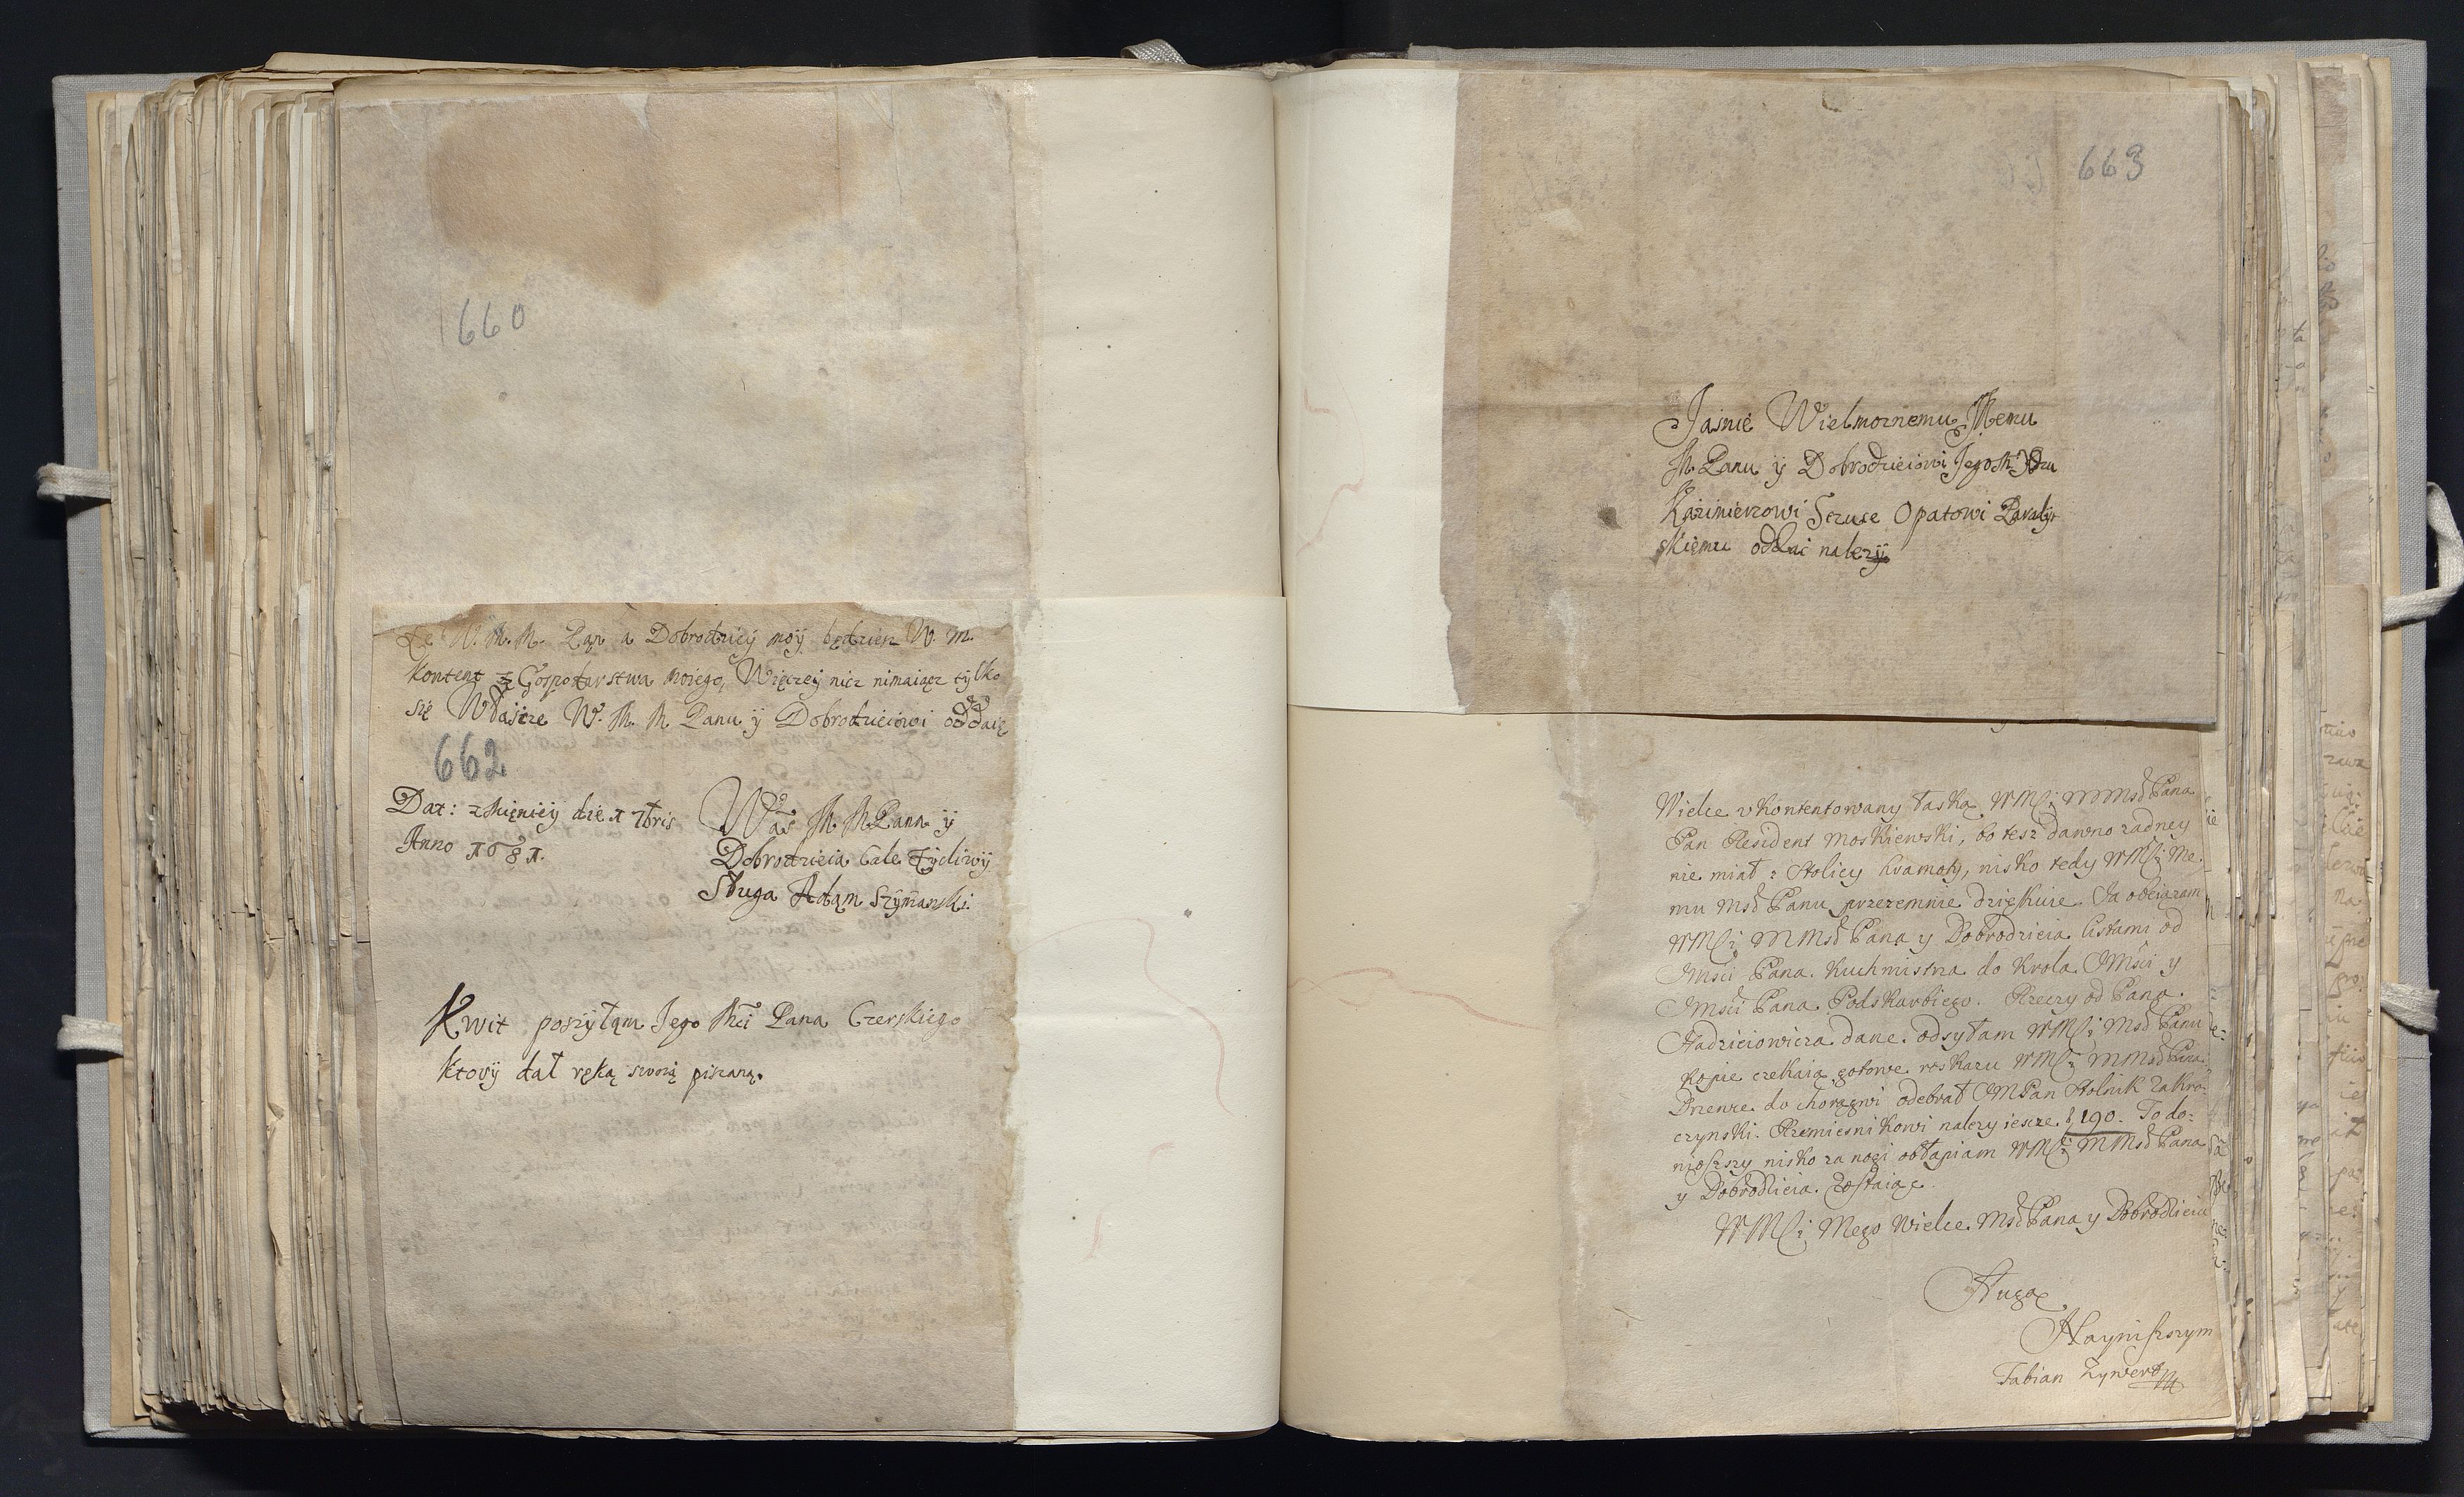 660
Że W. M. M. Pan a Dobrodziey moÿ będziesz W. M.
kontent z Gospodarstwa moiego, Więczey nicz nimaiącz tylko
się W łasce W. M. M Panu ÿ Dobrodzieiowi oddaię
662
Dat: z Mięniey die 1 7bris
Anno 1681.
Was M. M Pana ÿ
Dobrodzieia Cale Życliwÿ
Sługa Adąm Szÿmanski.
Kwit posÿłąm Jego Mci Pana Czerskiego
ktorÿ dał ręką swoią pisaną.
663
Jasnie Wielmoznemu Memu
M. Panu ÿ Dobrodzieiowi Jego M Xdzu
Kazimierzowi Sczuce Opatowi Paradÿ
skięmu oddac nalezÿ
Wielce vkontentowany łaską WMSci MMsd Pana
Pan Resident Moskiewski, bo tesz dawno zadney
nie miał z Stolicy hramoty, nisko tedy WMSci Me,
mu Msd Panu przezemnie dziękuie. Ja obciązam
WMSci MMsd Pana y Dobrodzieia listami od
JMsci Pana Kuchmistrza do Krola JMsci y
JMsci Pana Podskarbiego. Rzeczy od Pana
Hadzieiowicza dane odsyłam WMSci Msd Panu
Kopie czekaią gotowe roskazu WMSci MMsd Pana
Drzewze do chorągwi odebrał JMPan Stolnik Zakro-
czynski. Rzemiesnikowi nalezy iescze f 190. To do-
niozszy nisko za nogi obłapiam WMSci MMsd Pana
y Dobrodzieia. Zostaiąc
WMSci Mego Wielce Msd Pana y Dobrodzieia
Sługą
Nayniszszym
Fabian Zynwert